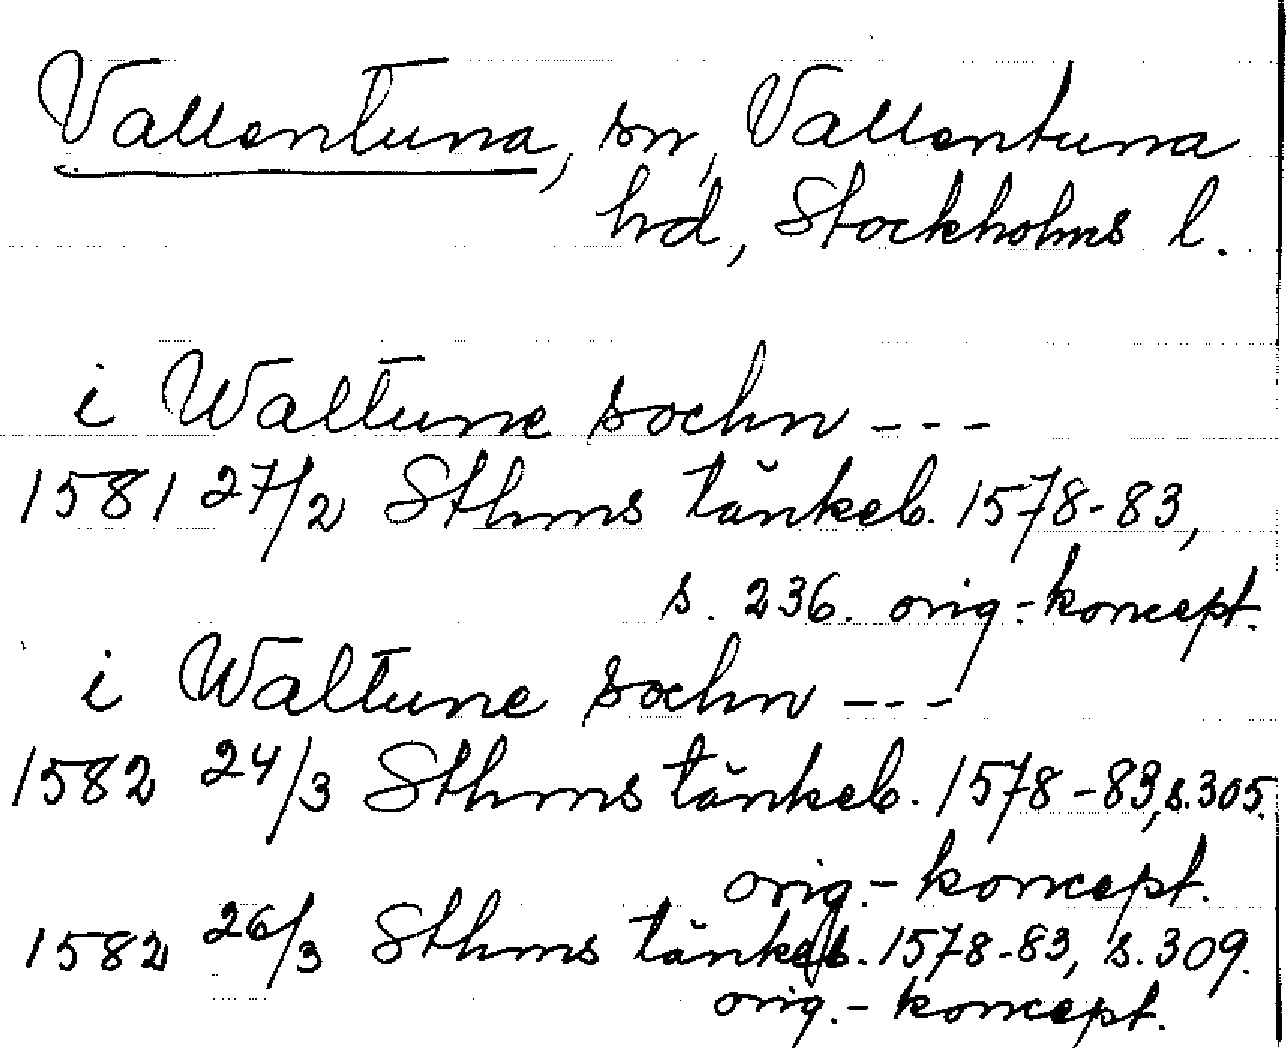 Vallentuna, sn, Vallentuna
hd, Stockholms l.
i Waltune sochn ---
1581 27/2 Sthms tänkeb. 1578-83,
s. 236. orig.-koncept.
i Waltune sochn ---
1582 24/3 Sthms tänkeb. 1578-83, s. 305.
orig.-koncept.
1582 26/3 Sthms tänkeb. 1578-83, s. 309.
orig.-koncept.